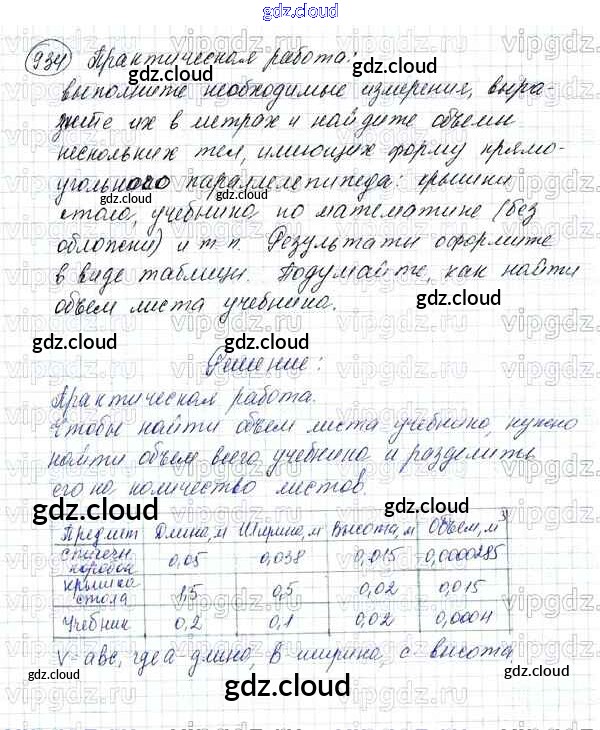 gdz.cloud
934 Практическая работа:
выполните необходимые измерения, выра-
зите их в метрах и найдите объемы
нескольких тел, имеющих форму прямо-
угольного параллелепипеда: крышки
стола, учебника по математике (без
обложки) и т.п. Результаты оформите
в виде таблицы. Подумайте, как найти
объем листа учебника.
Решение:
Практическая работа.
Чтобы найти объем листа учебника, нужно
найти объем всего учебника и разделить
его на количество листов.
Предмет Длина, м Ширина, м Высота, м Объем, м³
спичечн. коробок 0,05 0,038 0,015 0,0000285
крышка стола 1,5 0,5 0,02 0,015
Учебник 0,2 0,1 0,02 0,0004
V=abc, где a длина, B-ширина, c-высота.
gdz.cloud